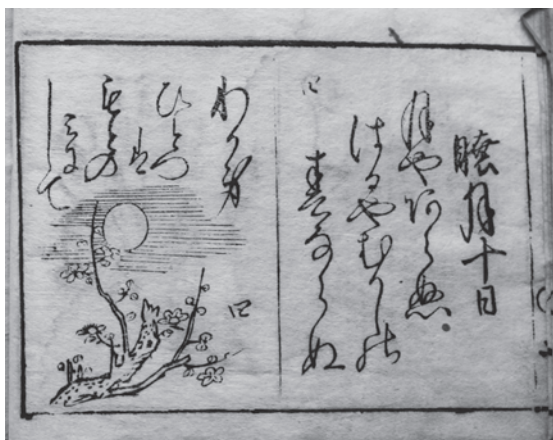 睦月十日
月やあらぬ
はるやむかしの
春ならぬ
わか身
ひとつ
は
もとの
みにして